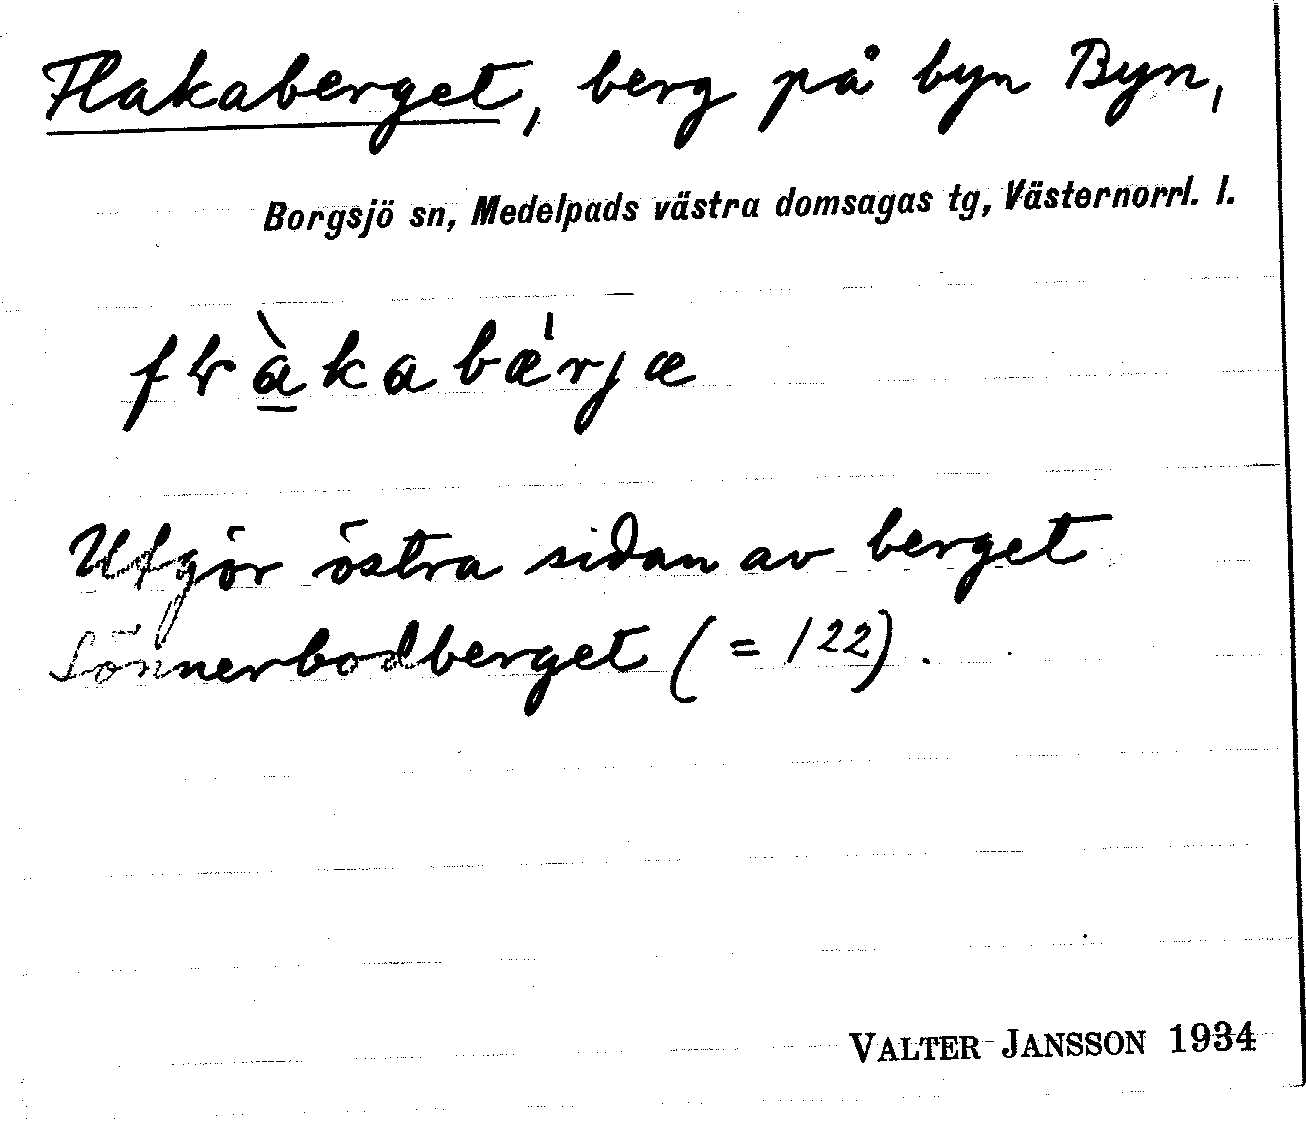 Flakaberget, berg på byn Byn,
Borgsjö sn, Medelpads västra domsagas tg, Västernorrl. l.
fràkabæ̍rjæ
Utgör östra sidan av berget
Sönnerbodberget (= 122).
VALTER JANSSON 1934